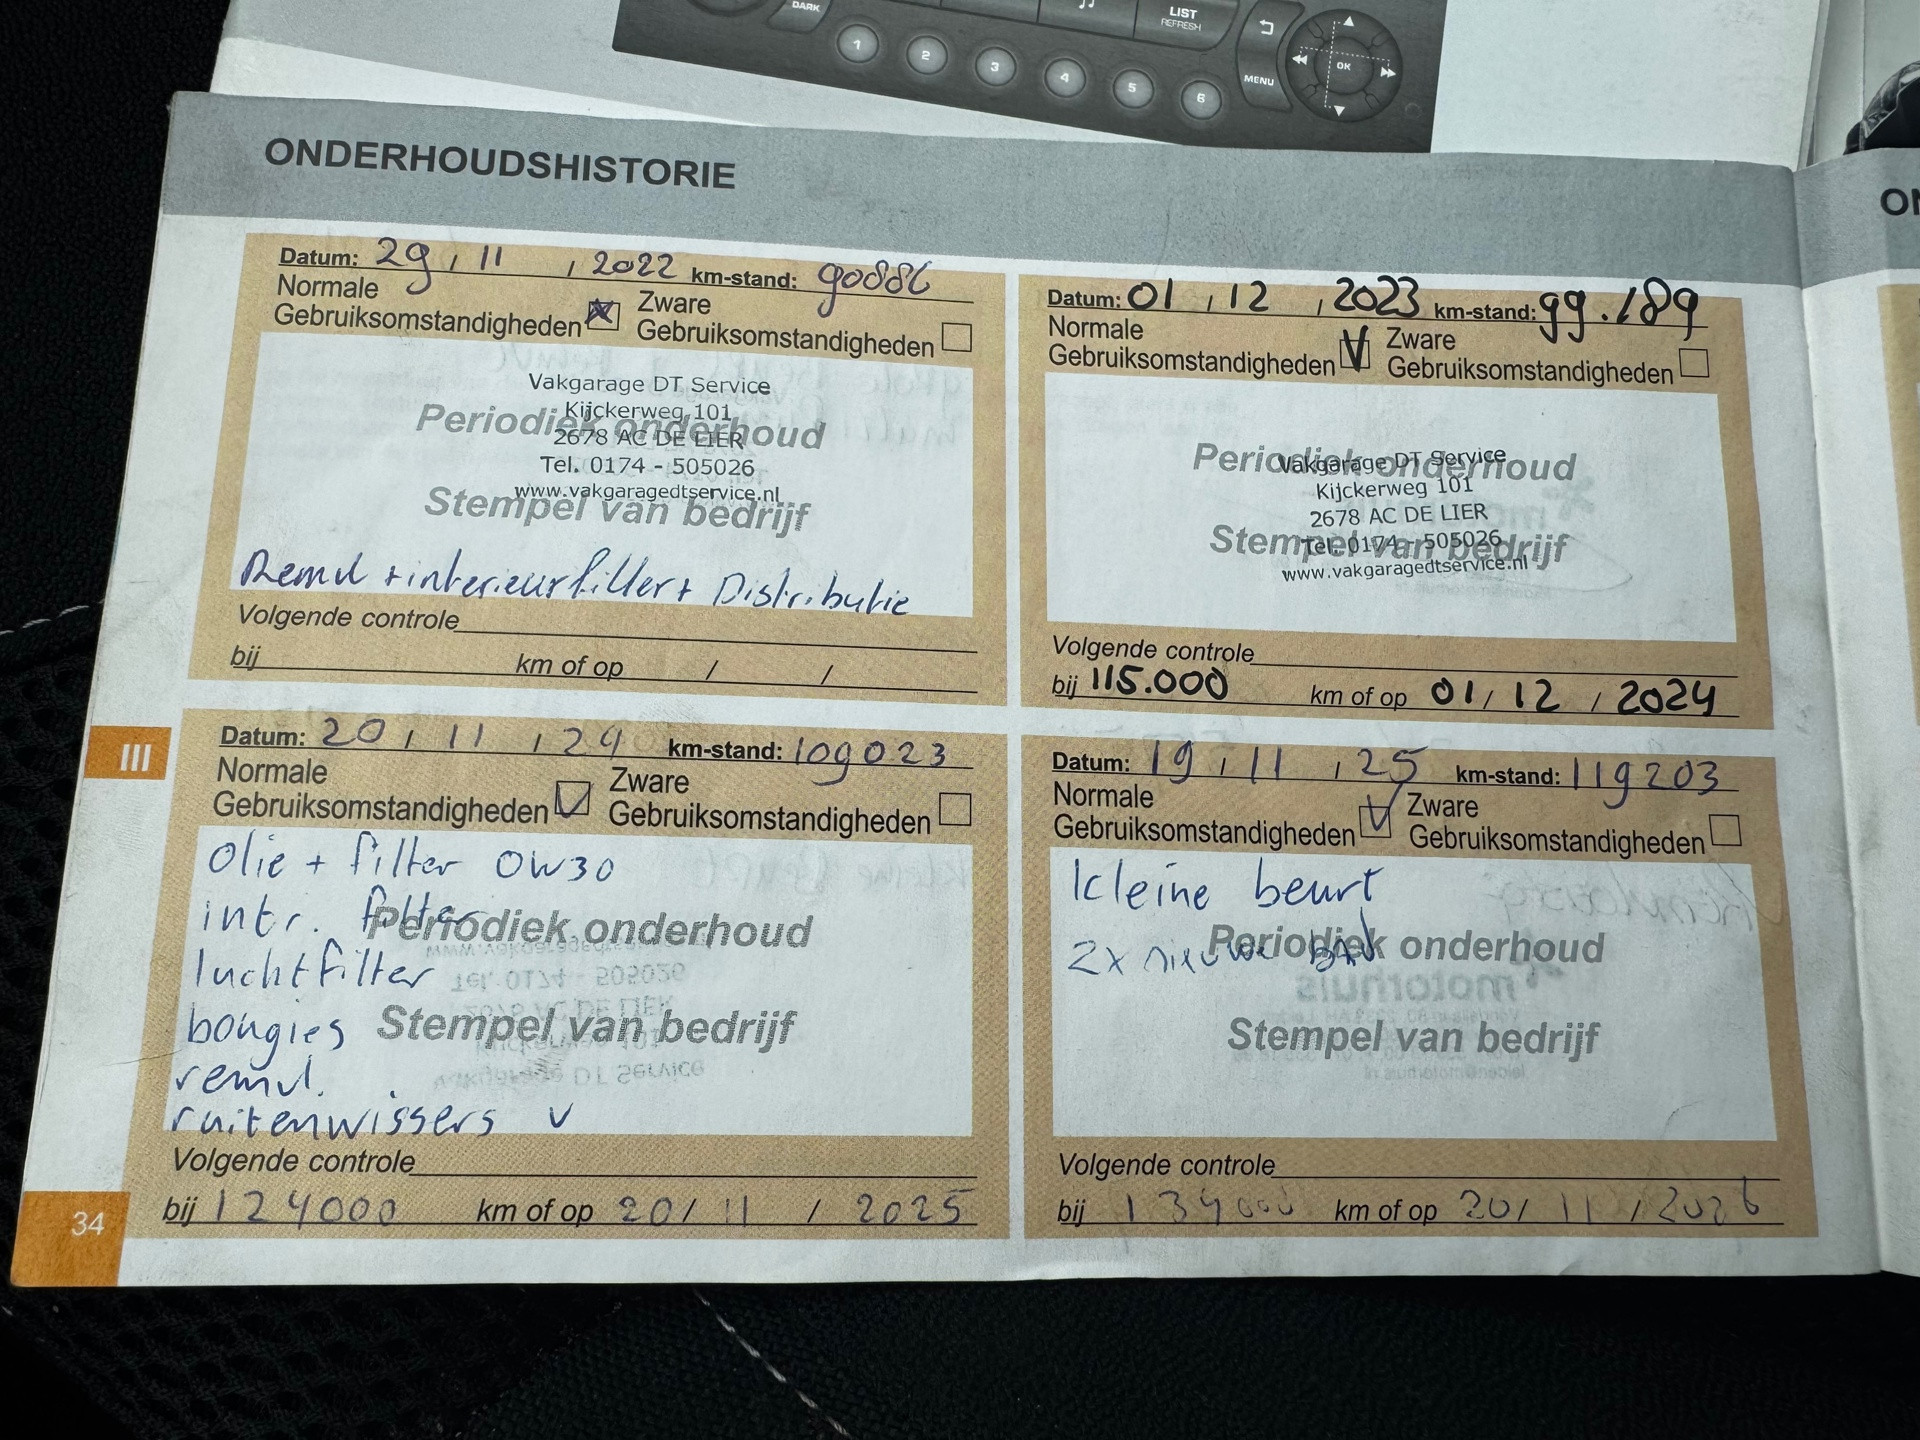 DARK
LIST
REFRESH
MENU
OK
1 2 3 4 5 6
ONDERHOUDSHISTORIE
Datum: 29 / 11 / 2022 km-stand: 90886
Normale
Gebruiksomstandigheden
Zware
Gebruiksomstandigheden
Vakgarage DT Service
Kijckerweg 101
Periodiek onderhoud
2678 AC DE LIER
Tel. 0174 - 505026
www.vakgaragedtservice.nl
Stempel van bedrijf
Remvl + interieurfilter + Distributie
Volgende controle
bij km of op / /
Datum: 01 / 12 / 2023 km-stand: 99.189
Normale
Gebruiksomstandigheden
Zware
Gebruiksomstandigheden
Periodiek onderhoud
Vakgarage DT Service
Kijckerweg 101
2678 AC DE LIER
Stempel van bedrijf
Tel. 0174 - 505026
www.vakgaragedtservice.nl
Volgende controle
bij 115.000 km of op 01 / 12 / 2024
III
Datum: 20 / 11 / 24 km-stand: 109023
Normale
Gebruiksomstandigheden
Zware
Gebruiksomstandigheden
Olie + filter 0W30
intr. filter
Periodiek onderhoud
luchtfilter
bougies
Stempel van bedrijf
remvl.
ruitenwissers v
Volgende controle
bij 124000 km of op 20 / 11 / 2025
Datum: 19 / 11 / 25 km-stand: 119203
Normale
Gebruiksomstandigheden
Zware
Gebruiksomstandigheden
kleine beurt
2x nieuwe
Periodiek onderhoud
Stempel van bedrijf
Volgende controle
bij 134000 km of op 20 / 11 / 2026
34